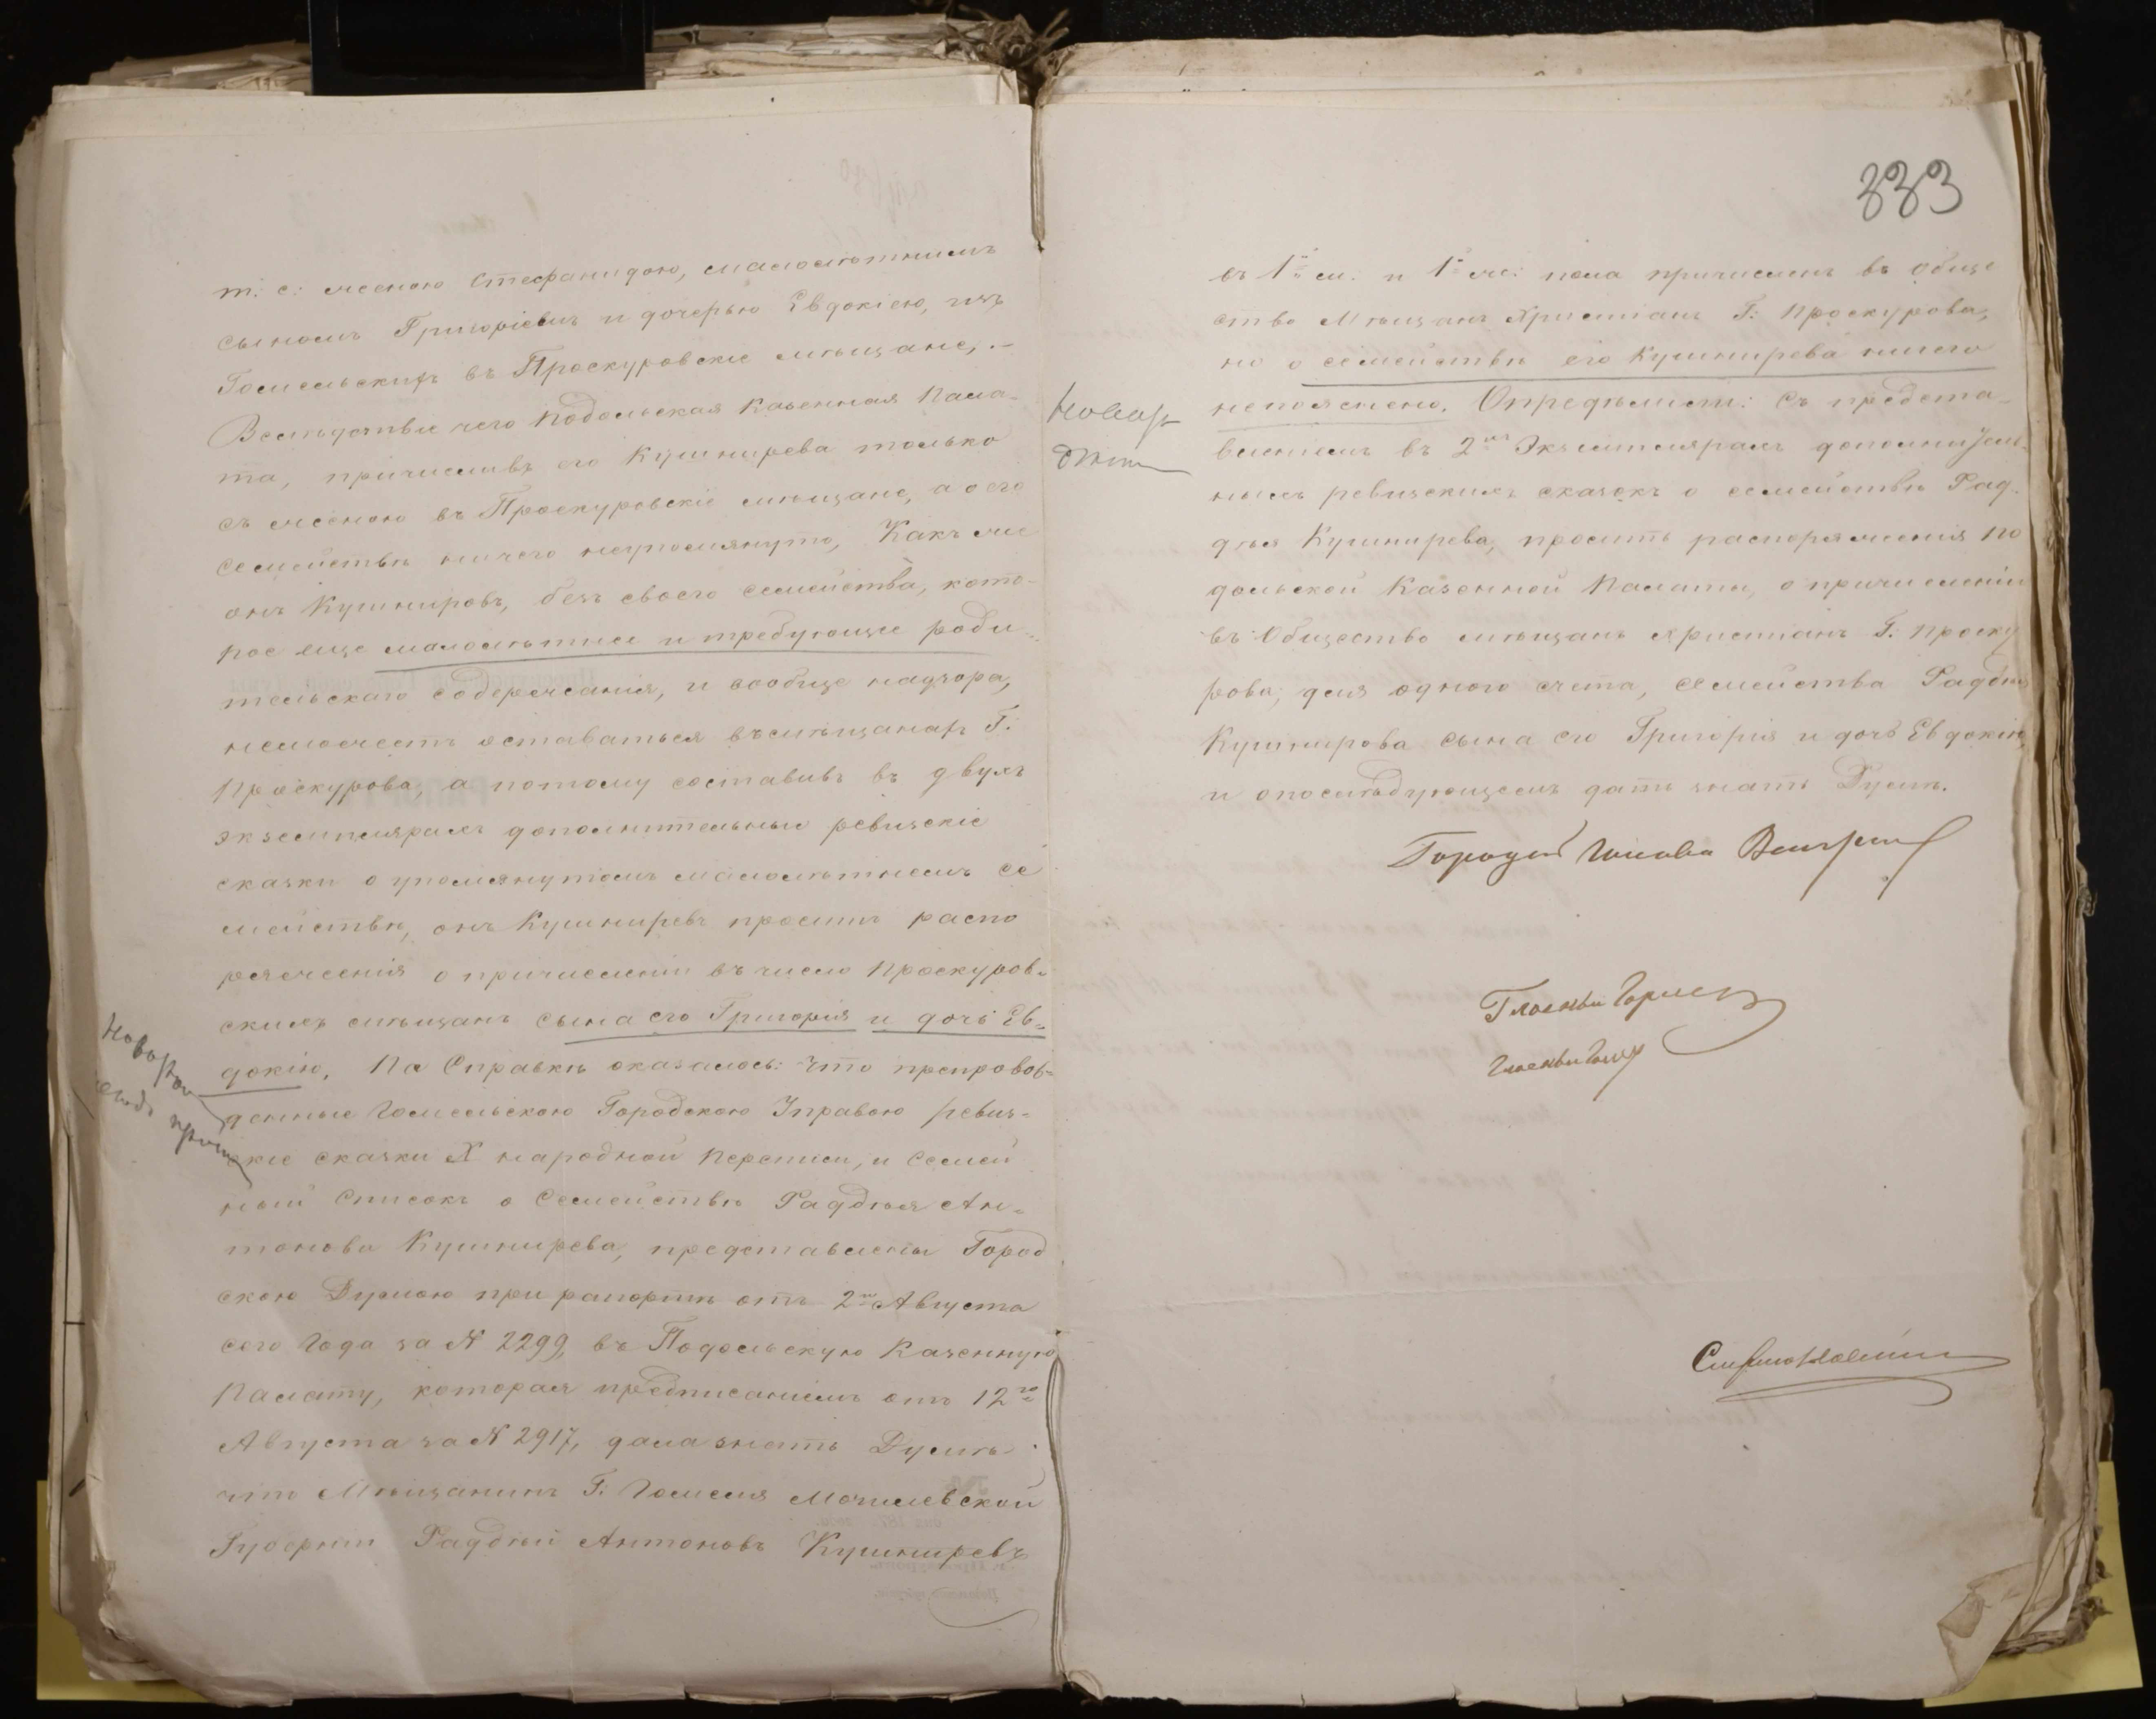 т: е: женою Стефанидою, малолѣтнимъ
сыномъ Григоріемъ и дочерью Евдокіею, изъ
Гомельскихъ въ Проскуровскіе мѣщане, .-
Вслѣдствіе чего Подольская Казенная Пала-
та, причисливъ его Кушнирева только
съ женою въ Проскуровскіе мѣщане, а о его
семействѣ ничего неупомянуто, Какъ же
онъ Кушниревъ, безъ своего семейства, кото-
рое еще малолѣтнее и требующее роди-
тельскаго содержанія, и вообще надзора,
неможетъ оставаться въ мѣщанахъ Г:
Проскурова, а потому составивъ въ двухъ
экземплярахъ дополнительныя ревизскіе
сказки о упомянутомъ малолѣтнемъ се
мействѣ, онъ Кушниревъ проситъ распо
ряженія о причисленіи въ число Проскуров-
скихъ мѣщанъ сына его Григорія и дочь Ев-
докію, По Справкѣ оказалось: что препровож-
денные Гомельскою Городскою Управою ревиз-
скіе сказки X народной переписи, и Семей
ный Списокъ о Семействѣ Фаддѣя Ан-
тонова Кушнирева, представлены Город
скою Думою при рапортѣ отъ 2го Августа
сего года за № 2299, въ Подольскую Казенную
Палату, которая предписаніемъ отъ 12го
Августа за № 2917, дала знать Думѣ
что Мѣщанинъ Г: Гомеля Могилевской
Губерніи Фаддѣй Антоновъ Кушниревъ
333
въ 1й м: и 1й ж: пола причисленъ въ обще
ство Мѣщанъ Христіанъ Г: Проскурова,
но о семействѣ его Кушнирева ничего
непояснено. Опредѣлили: Съ предста-
вленіемъ въ 2хъ Экземплярахъ дополнитель-
ныхъ ревизскихъ сказокъ о семействѣ Фад-
дѣя Кушнирева, просить распоряженія По
дольской Казенной Палаты, о причисленіи
въ Общество мѣщанъ христіанъ Г: Проску
рова, для одного счета, семейства Фаддѣя
Кушнирева сына его Григорія и дочь Евдокію,
и опослѣдующемъ дать знать Думѣ.
Городской Голова
Гласный
Гласный